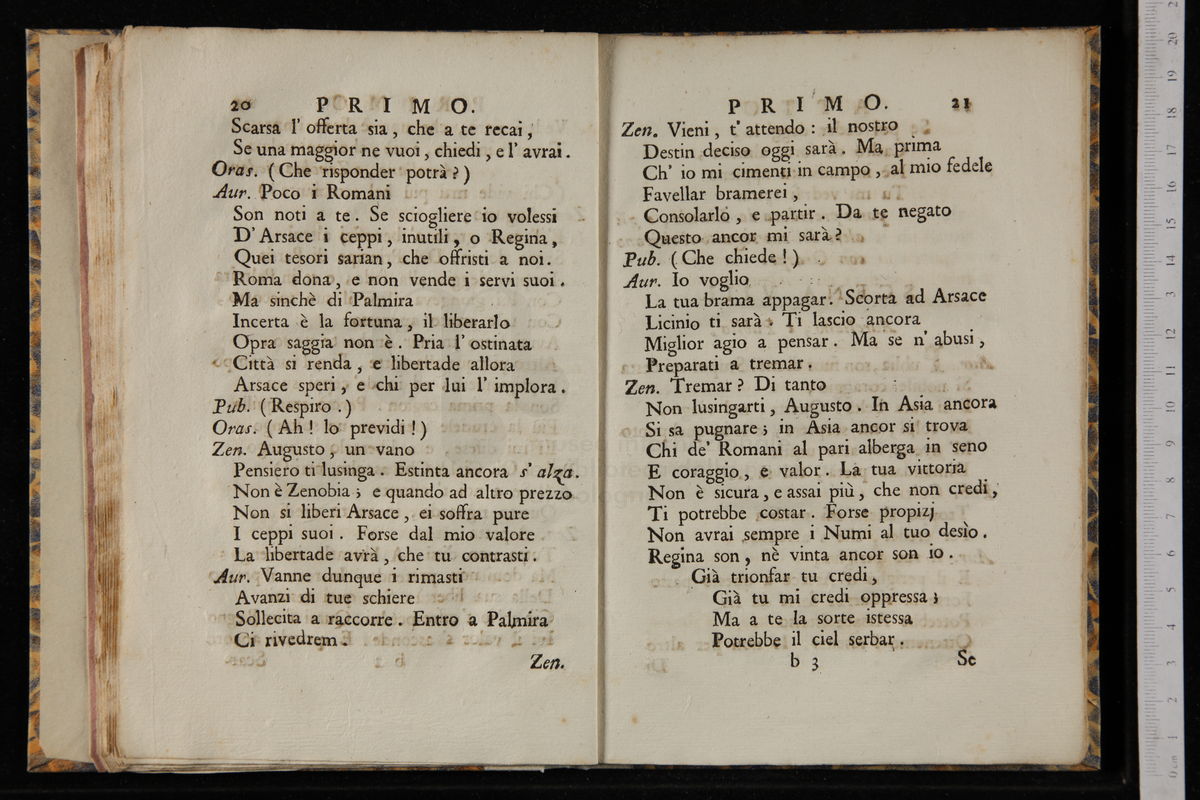 20 PRIMO.
Scarsa l' offerta sia, che a te recai,
Se una maggior ne vuoi, chiedi, e l' avrai.
Oras. (Che risponder potrà?)
Aur. Poco i Romani
Son noti a te. Se sciogliere io volessi
D' Arsace i ceppi, inutili, o Regina,
Quei tesori sarian, che offristi a noi.
Roma dona, e non vende i servi suoi.
Ma sinchè di Palmira
Incerta è la fortuna, il liberarlo
Opra saggia non è. Pria l' ostinata
Città si renda, e libertade allora
Arsace speri, e chi per lui l' implora.
Pub. (Respiro.)
Oras. (Ah! lo previdi!)
Zen. Augusto, un vano
Pensiero ti lusinga. Estinta ancora s' alza.
Non è Zenobia; e quando ad altro prezzo
Non si liberi Arsace, ei soffra pure
I ceppi suoi. Forse dal mio valore
La libertade avrà, che tu contrasti.
Aur. Vanne dunque i rimasti
Avanzi di tue schiere
Sollecita a raccorre. Entro a Palmira
Ci rivedrem.
Zen.
PRIMO. 21
Zen. Vieni, t' attendo: il nostro
Destin deciso oggi sarà. Ma prima
Ch' io mi cimenti in campo, al mio fedele
Favellar bramerei,
Consolarlo, e partir. Da te negato
Questo ancor mi sarà?
Pub. (Che chiede!)
Aur. Io voglio
La tua brama appagar. Scorta ad Arsace
Licinio ti sarà. Ti lascio ancora
Miglior agio a pensar. Ma se n' abusi,
Preparati a tremar.
Zen. Tremar? Di tanto
Non lusingarti, Augusto. In Asia ancora
Si sa pugnare; in Asia ancor si trova
Chi de' Romani al pari alberga in seno
E coraggio, e valor. La tua vittoria
Non è sicura, e assai più, che non credi,
Ti potrebbe costar. Forse propizj
Non avrai sempre i Numi al tuo desìo.
Regina son, nè vinta ancor son io.
Già trionfar tu credi,
Già tu mi credi oppressa;
Ma a te la sorte istessa
Potrebbe il ciel serbar.
b 3 Se